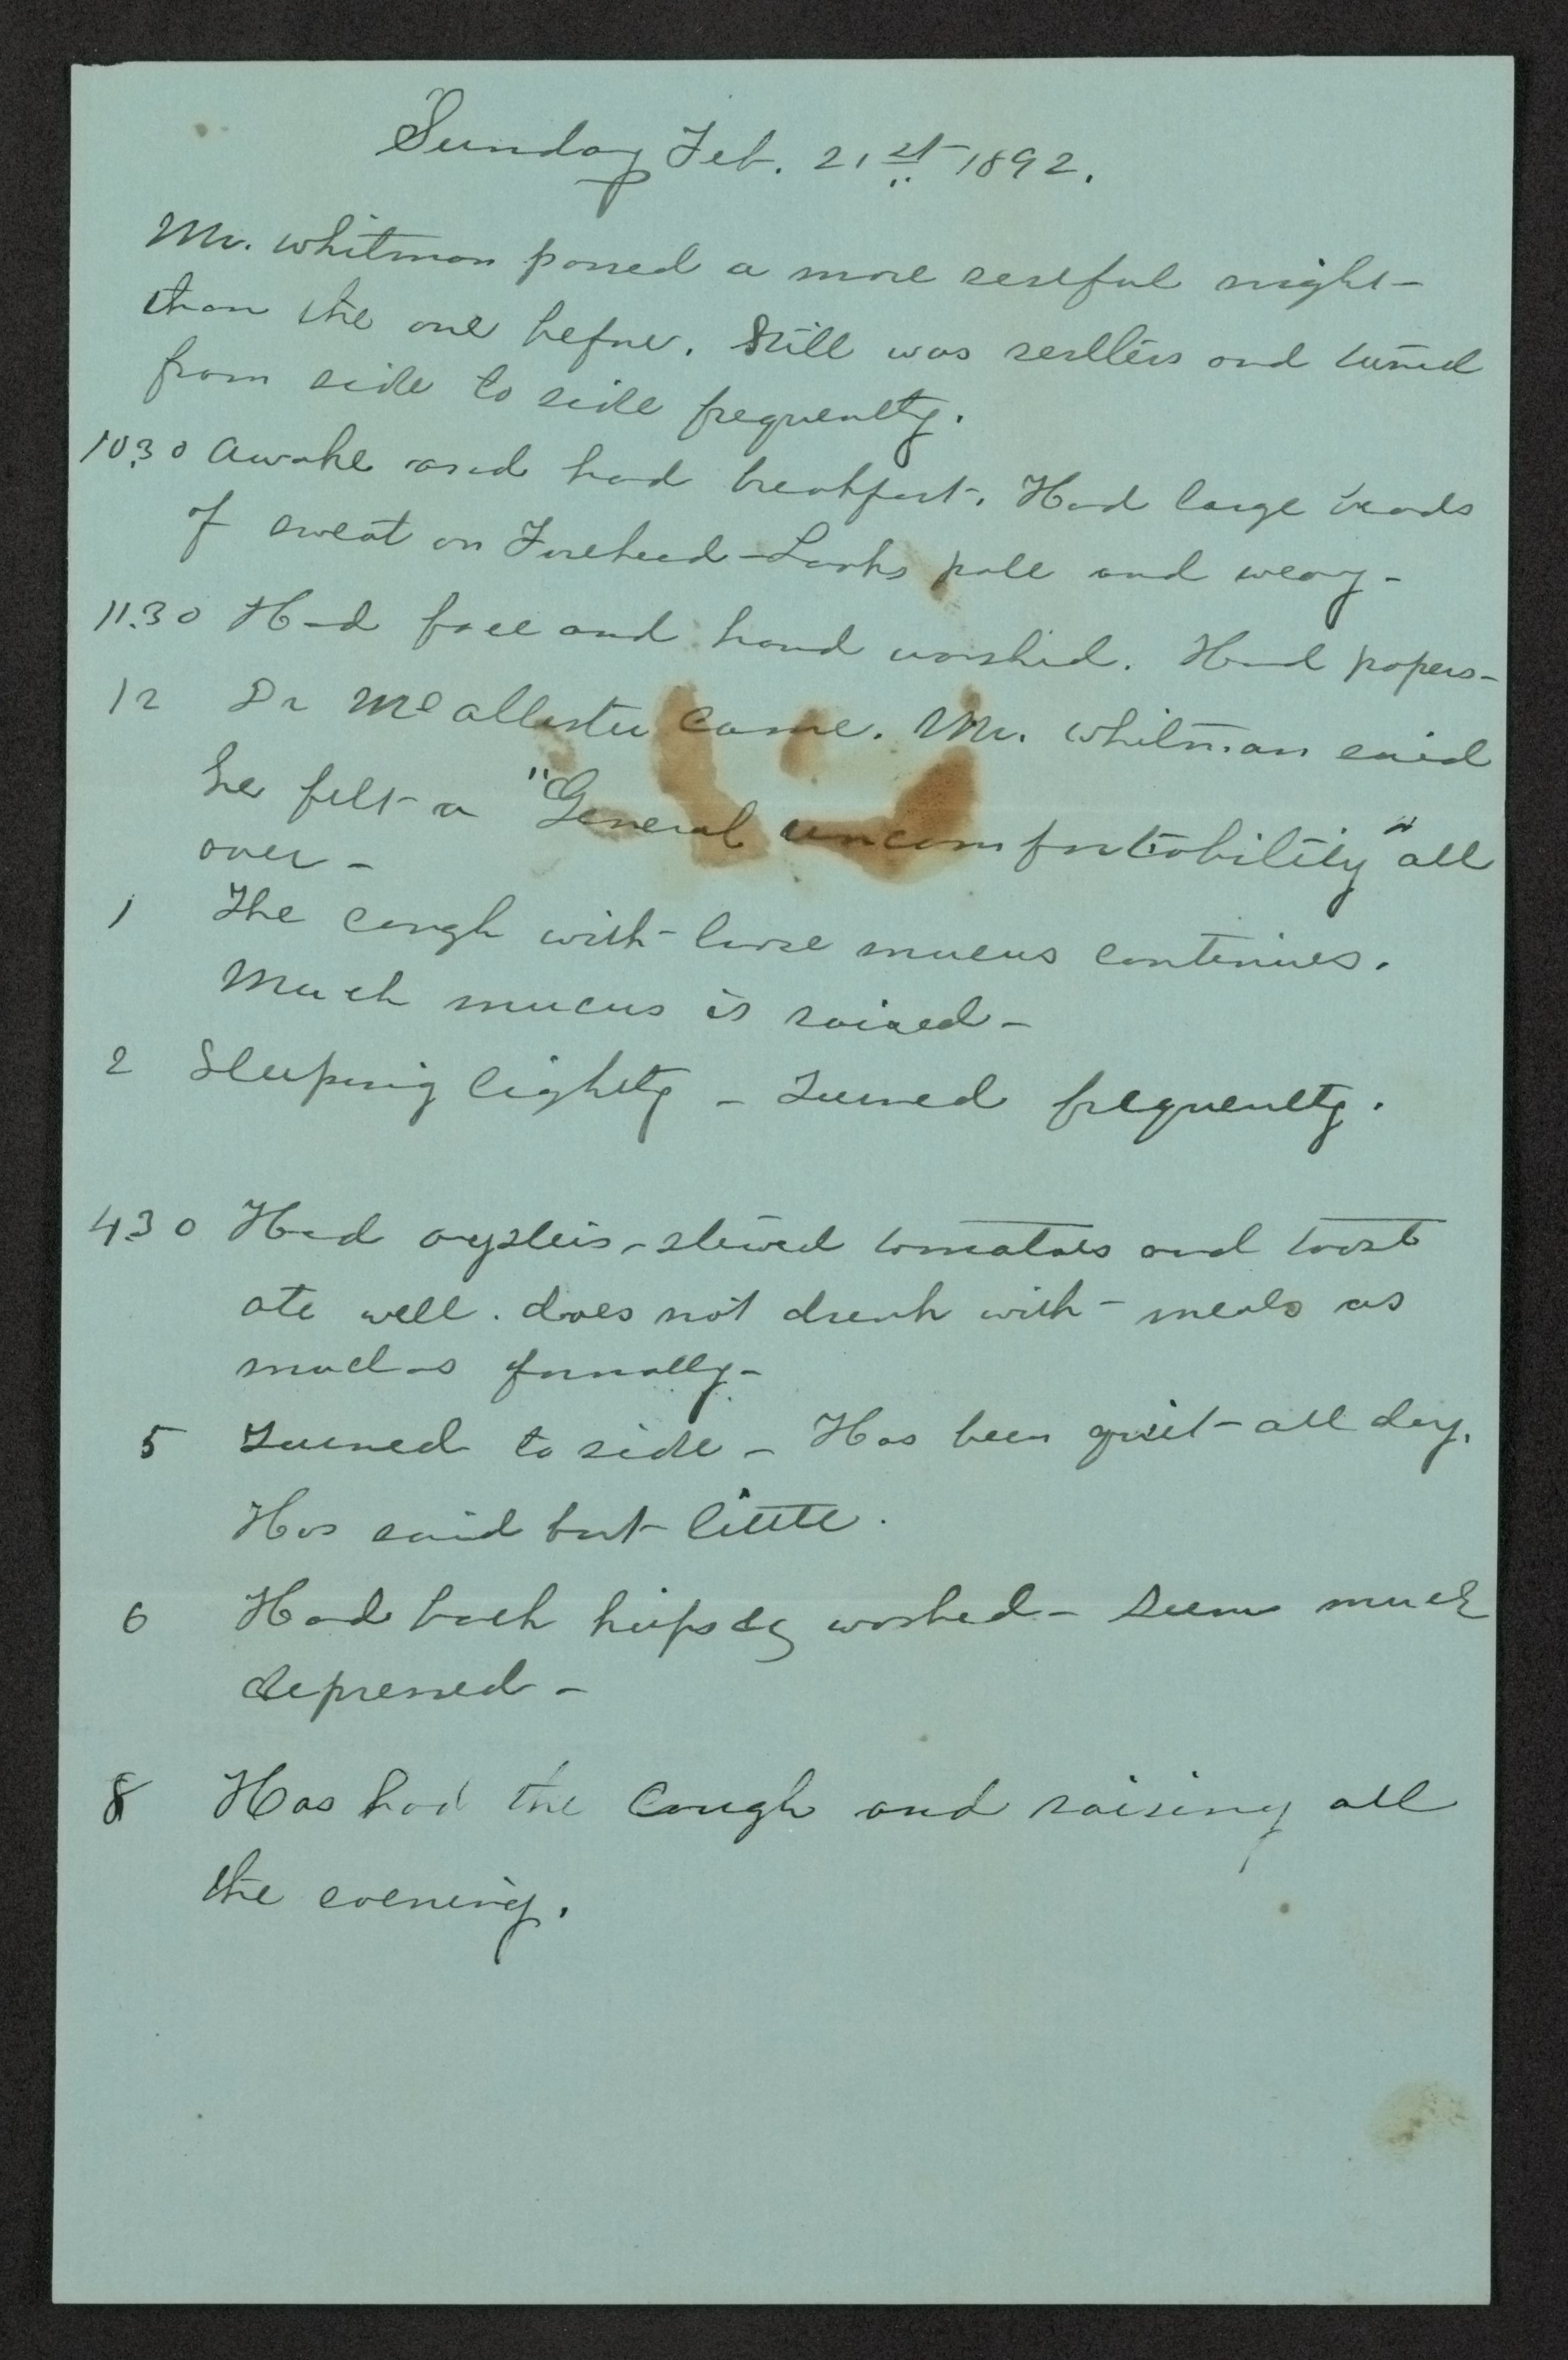 Sunday Feb. 21st 1892.
Mr. Whitman passed a more restful night-
than the one before. Still was restless and turned
from side to side frequently.
10.30 Awoke and had breakfast. Had large beads
of sweat on Forehead - Looks pale and weary -
11.30 Had face and hand washed. Had papers -
12 Dr McAllister came. Mr. Whitman said
he felt a "General uncomfortability" all
over -
1 The cough with loose mucus continues.
Much mucus is raised -
2 Sleeping lightly - Turned frequently.
4.30 Had oysters - stewed tomatoes and toast
ate well. does not drink with - meals as
much as formally -
5 Turned to side - Has been quiet - all day.
Has said but little.
6 Had back hips &c washed - Seems much
depressed -
8 Has had the Cough and raising all
the evening.